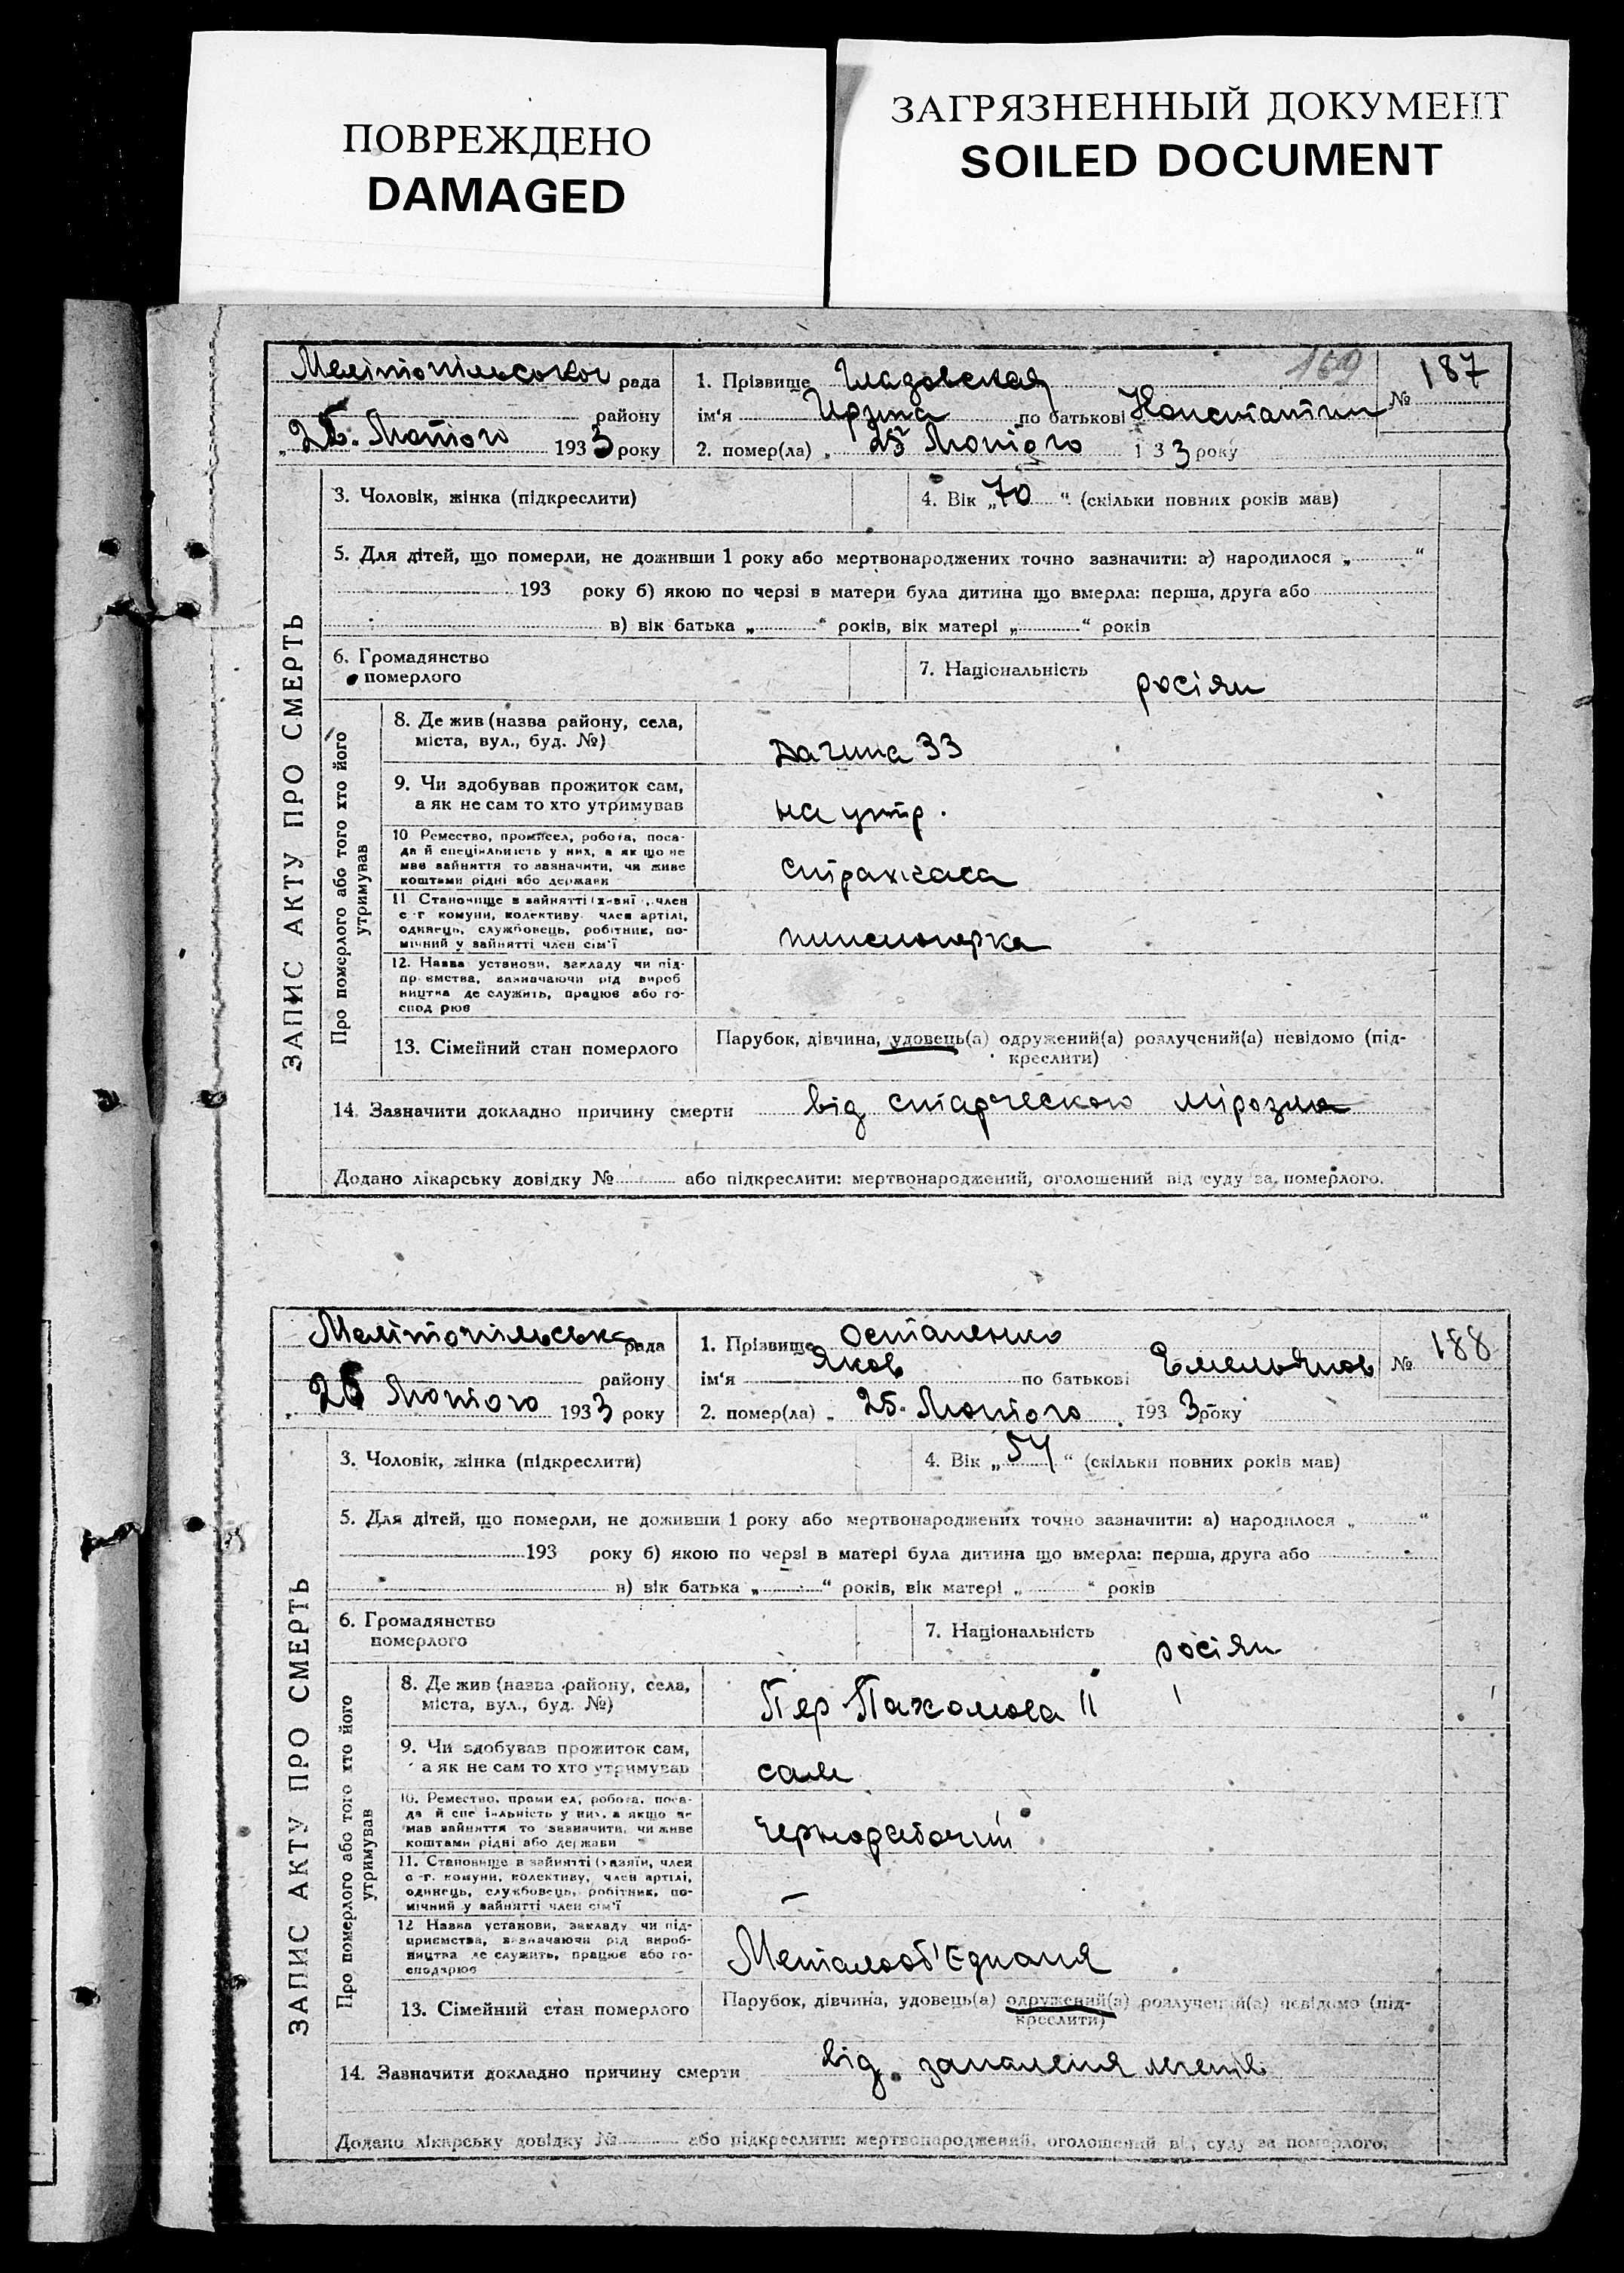 ПОВРЕЖДЕНО
DAMAGED
ЗАГРЯЗНЕННЫЙ ДОКУМЕНТ
SOILED DOCUMENT
169
рада
району
25. Лютого 1933 року
1. Прізвище
ім'я по батькові Константин
№ 187
2. помер(ла) „ 25 Лютого 1 33 року
ЗАПИС АКТУ ПРО СМЕРТЬ
3. Чоловік, жінка (підкреслити)
4. Вік „70“ (скільки повних років мав)
5. Для дітей, що померли, не доживши 1 року або мертвонароджених точно зазначити: а) народилося „ “
193 року б) якою по черзі в матери була дитина що вмерла: перша, друга або
в) вік батька „ “ років, вік матері „ “ років
6. Громадянство
померлого
7. Національність росіян
Про померлого або того хто його
утримував
8. Де жив (назва району, села,
міста, вул., буд. №)
33
9. Чи здобував прожиток сам,
а як не сам то хто утримував
на утр.
10 Ремество, промисел, робота, поса-
да й специільність у них, а як що не
мав зайняття то зазначити, чи живе
коштами рідні або держави
страхкаса
11 Становище в зайнятті член
с-г комуни, колективу член артілі,
одинець, службовець, робітник, по-
мічний у зайнятті член сім'ї
12. Назва установи, закладу чи під-
пр ємства, зазначаючи рід вироб
ництва де служить, працює або го-
спод рює
13. Сімейний стан померлого
Парубок, дівчина, удовець(а) одружений(а) розлучений(а) невідомо (під-
креслити)
14. Зазначити докладно причину смерти від старческого
Додано лікарську довідку № або підкреслити: мертвонароджений, оголошений від суду за померлого.
Мелітопільська рада
району
25 Лютого 1933 року
1. Прізвище Остапенко
ім'я Яков по батькові Емельянов
№ 188
2. помер(ла) „ 25. Лютого 1933 року
ЗАПИС АКТУ ПРО СМЕРТЬ
3. Чоловік, жінка (підкреслити)
4. Вік „54“ (скільки повних років мав)
5. Для дітей, що померли, не доживши 1 року або мертвонароджених точно зазначити: а) народилося „ “
193 року б) якою по черзі в матері була дитина що вмерла: перша, друга або
в) вік батька „ “ років, вік матері „ “ років
6. Громадянство
померлого
7. Національність росіян
Про померлого або того хто його
утримував
8. Де жив (назва району, села,
міста, вул., буд. №)
Пер Пахомова 11
9. Чи здобував прожиток сам,
а як не сам то хто утримував
сам
10. Ремество, проми ел, робота, поса-
да й спе іальність у них, а якщо не
мав зайняття то зазначити, чи живе
коштами рідні або держави
Чернорабочий
11. Становище в зайнятті (хазяїн, член
с-г. комуни, колективу, член артілі,
одинець, службовець, робітник, по-
мічний у зайнятті член сім'ї
–
12 Назва установи, закладу чи під-
приємства, зазначаючи рід вироб-
ництва де служить, працює або го-
сподарює
Металооб'єднаня
13. Сімейний стан померлого
Парубок, дівчина, удовець(а) одружений(а) розлучений(а) невідомо (під-
креслити)
14. Зазначити докладно причину смерти від запаленя легенів
Додано лікарську довідку № або підкреслити: мертвонароджений, оголошений від суду за померлого.